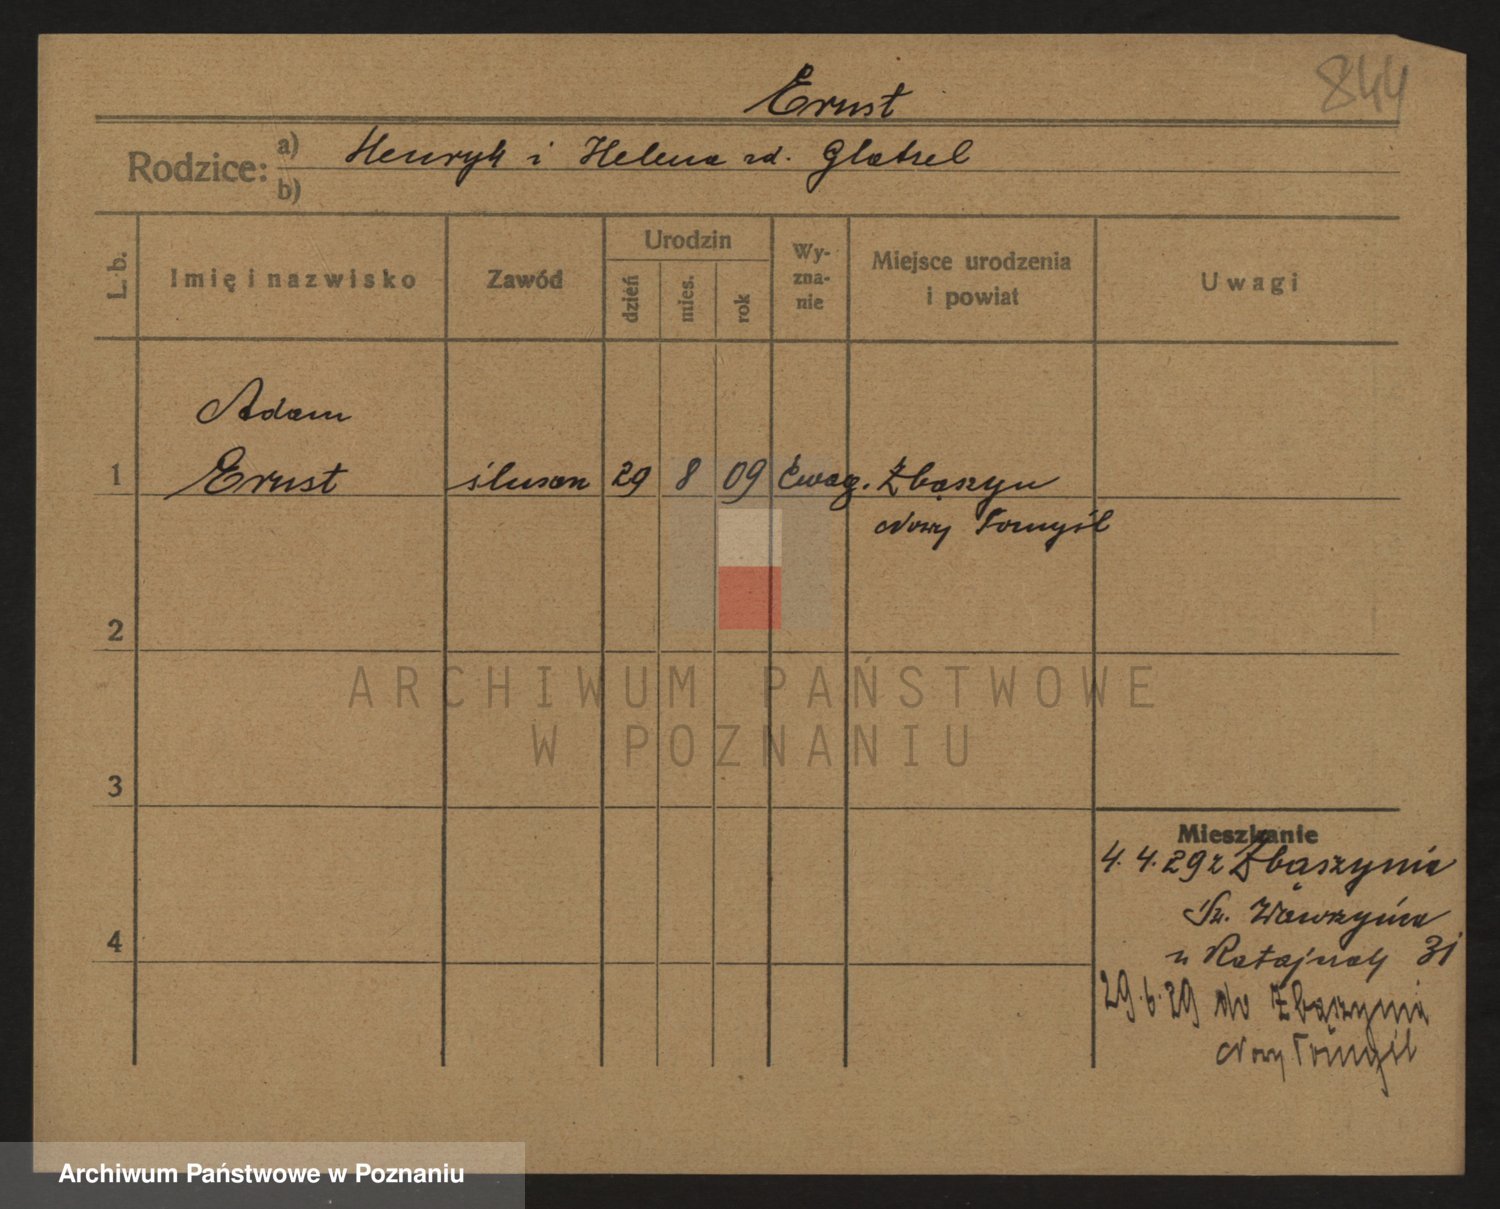 844
Ernst
Rodzice: a) Henryk i Helena zd. Glatzel
b)
L. b.
Imię i nazwisko
Zawód
Urodzin
dzień
mies.
rok
Wy-
zna-
nie
Miejsce urodzenia
i powiat
Uwagi
Adam
1 Ernst ślusarz 29 8 09 Ewag. Zbąszyn
Nowy Tomyśl
2
ARCHIWUM PAŃSTWOWE
W POZNANIU
3
Mieszkanie
4. 4. 29 z Zbąszynia
Św. Wawrzyńca
4
u Ratajczak 31
29. 6. 29 do Zbąszynia
Nowy Tomyśl
Archiwum Państwowe w Poznaniu